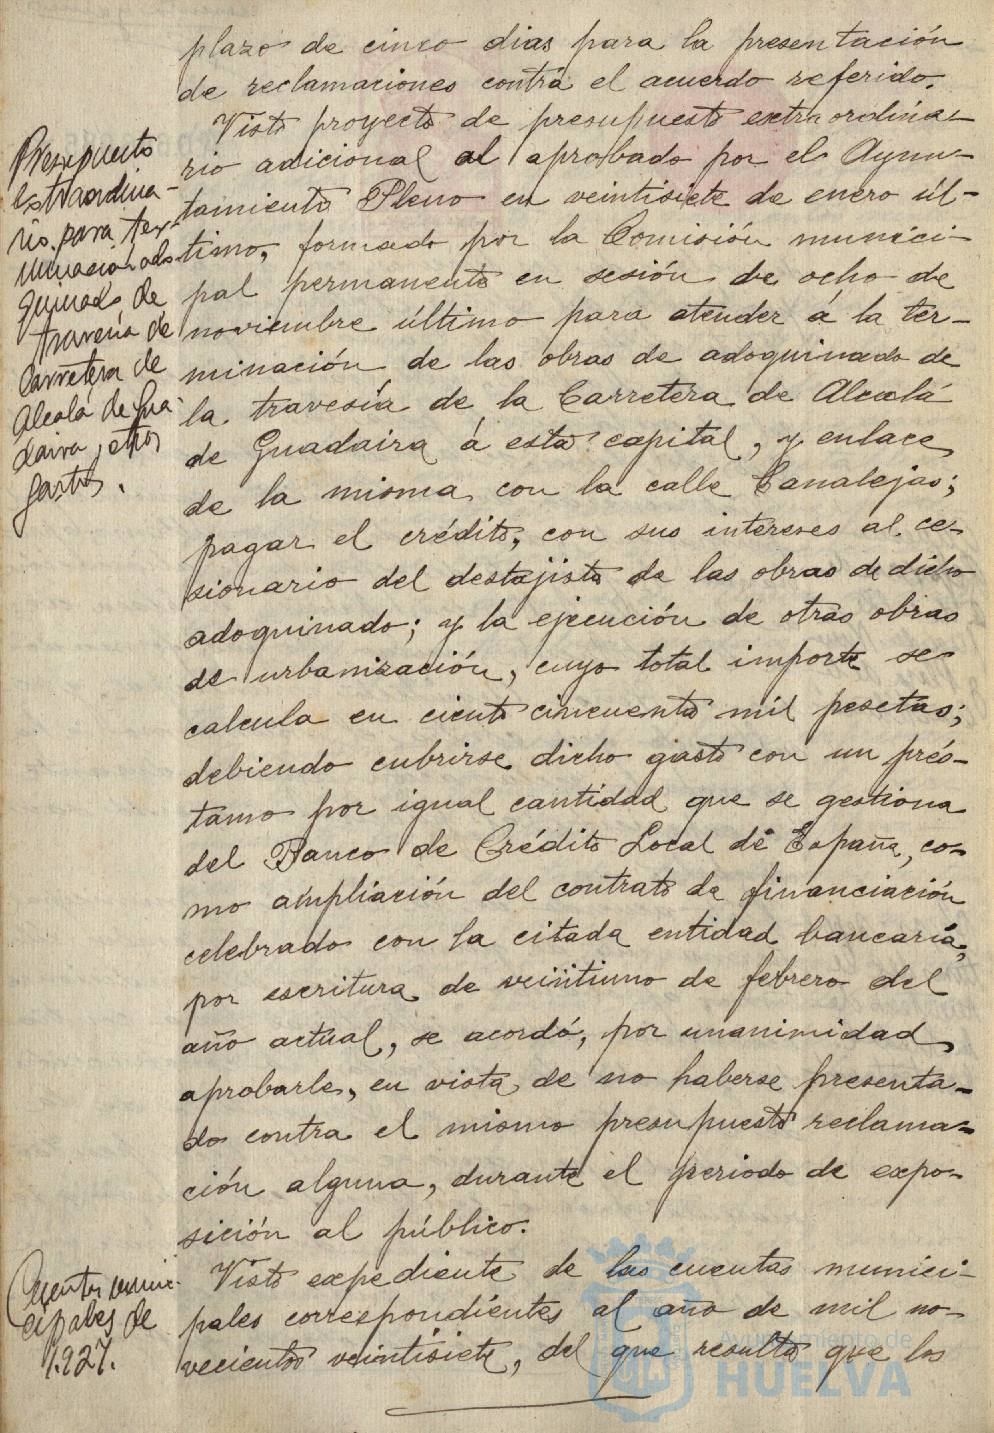 plazo de cinco dias para la presentación
de reclamaciones contra el acuerdo referido.
Visto proyecto de presupuesto extraordina-
rio adicional al aprobado por el Ayun-
tamiento Pleno en veintisiete de enero úl-
timo, formado por la Comisión munici-
pal permanente en sesión de ocho de
noviembre último para atender á la ter-
minación de las obras de adoquinado de
la travesía de la Carretera de Alcalá
de Guadaira á esta capital, y enlace
de la misma con la calle Canalejas;
pagar el crédito, con sus intereses al ce-
sionario del destajista de las obras de dicho
adoquinado; y la ejecución de otras obras
de urbanización, cuyo total importe se
calcula en ciento cincuenta mil pesetas;
debiendo cubrirse dicho gasto con un prés-
tamo por igual cantidad que se gestiona
del Banco de Crédito Local de España, co-
mo ampliación del contrato de financiación
celebrado con la citada entidad bancaria,
por escritura de veintiuno de febrero del
año actual, se acordó, por unanimidad
aprobarle, en vista de no haberse presenta-
do contra el mismo presupuesto reclama-
ción alguna, durante el periodo de expo-
sición al público.
Visto expediente de las cuentas munici-
pales correspondientes al año de mil no-
vecientos veintisiete, del que resulta que los
Presupuesto
extraordina-
rio para ter-
minacion ado
quinado de
travesía de
Carretera de
Alcalá de Gua-
daira y otros
gastos.
Cuentas muni-
cipales de
1.927.
Ayuntamiento de
HUELVA